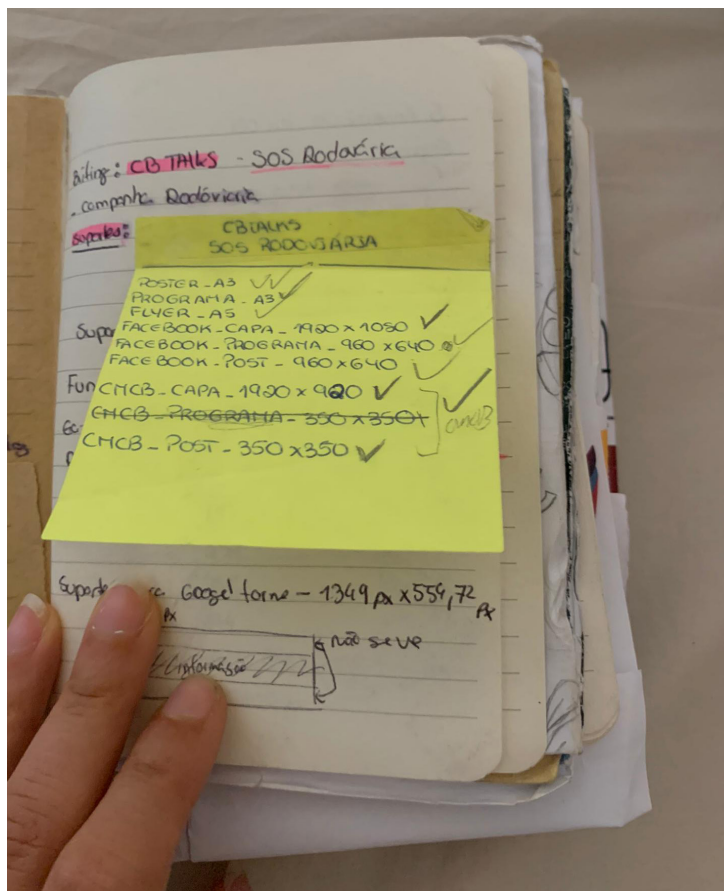 Briting: CB TALKS - SOS Rodovária
. companha Rodóviaria
Suportes:
CBTALKS
SOS RODOVIÁRIA
POSTER_A3
PROGRAMA_A3
FLYER_A5
Supor
FACEBOOK_CAPA_1920x1050
FACEBOOK_PROGRAMA_960x640
FACEBOOK_POST_960x640
Fun
CMCB_CAPA_1920x920
CMCB_PROGRAMA_350x350
CMCB
CMCB_POST_350x350
Suporte Googel forme - 1349 px x 554,72 px
px
não se ve
informasão